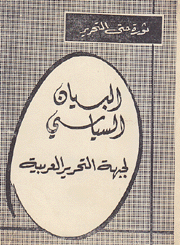 ثورة حتى التحرير
البيان
السياسي
لجبهة التحرير العربية